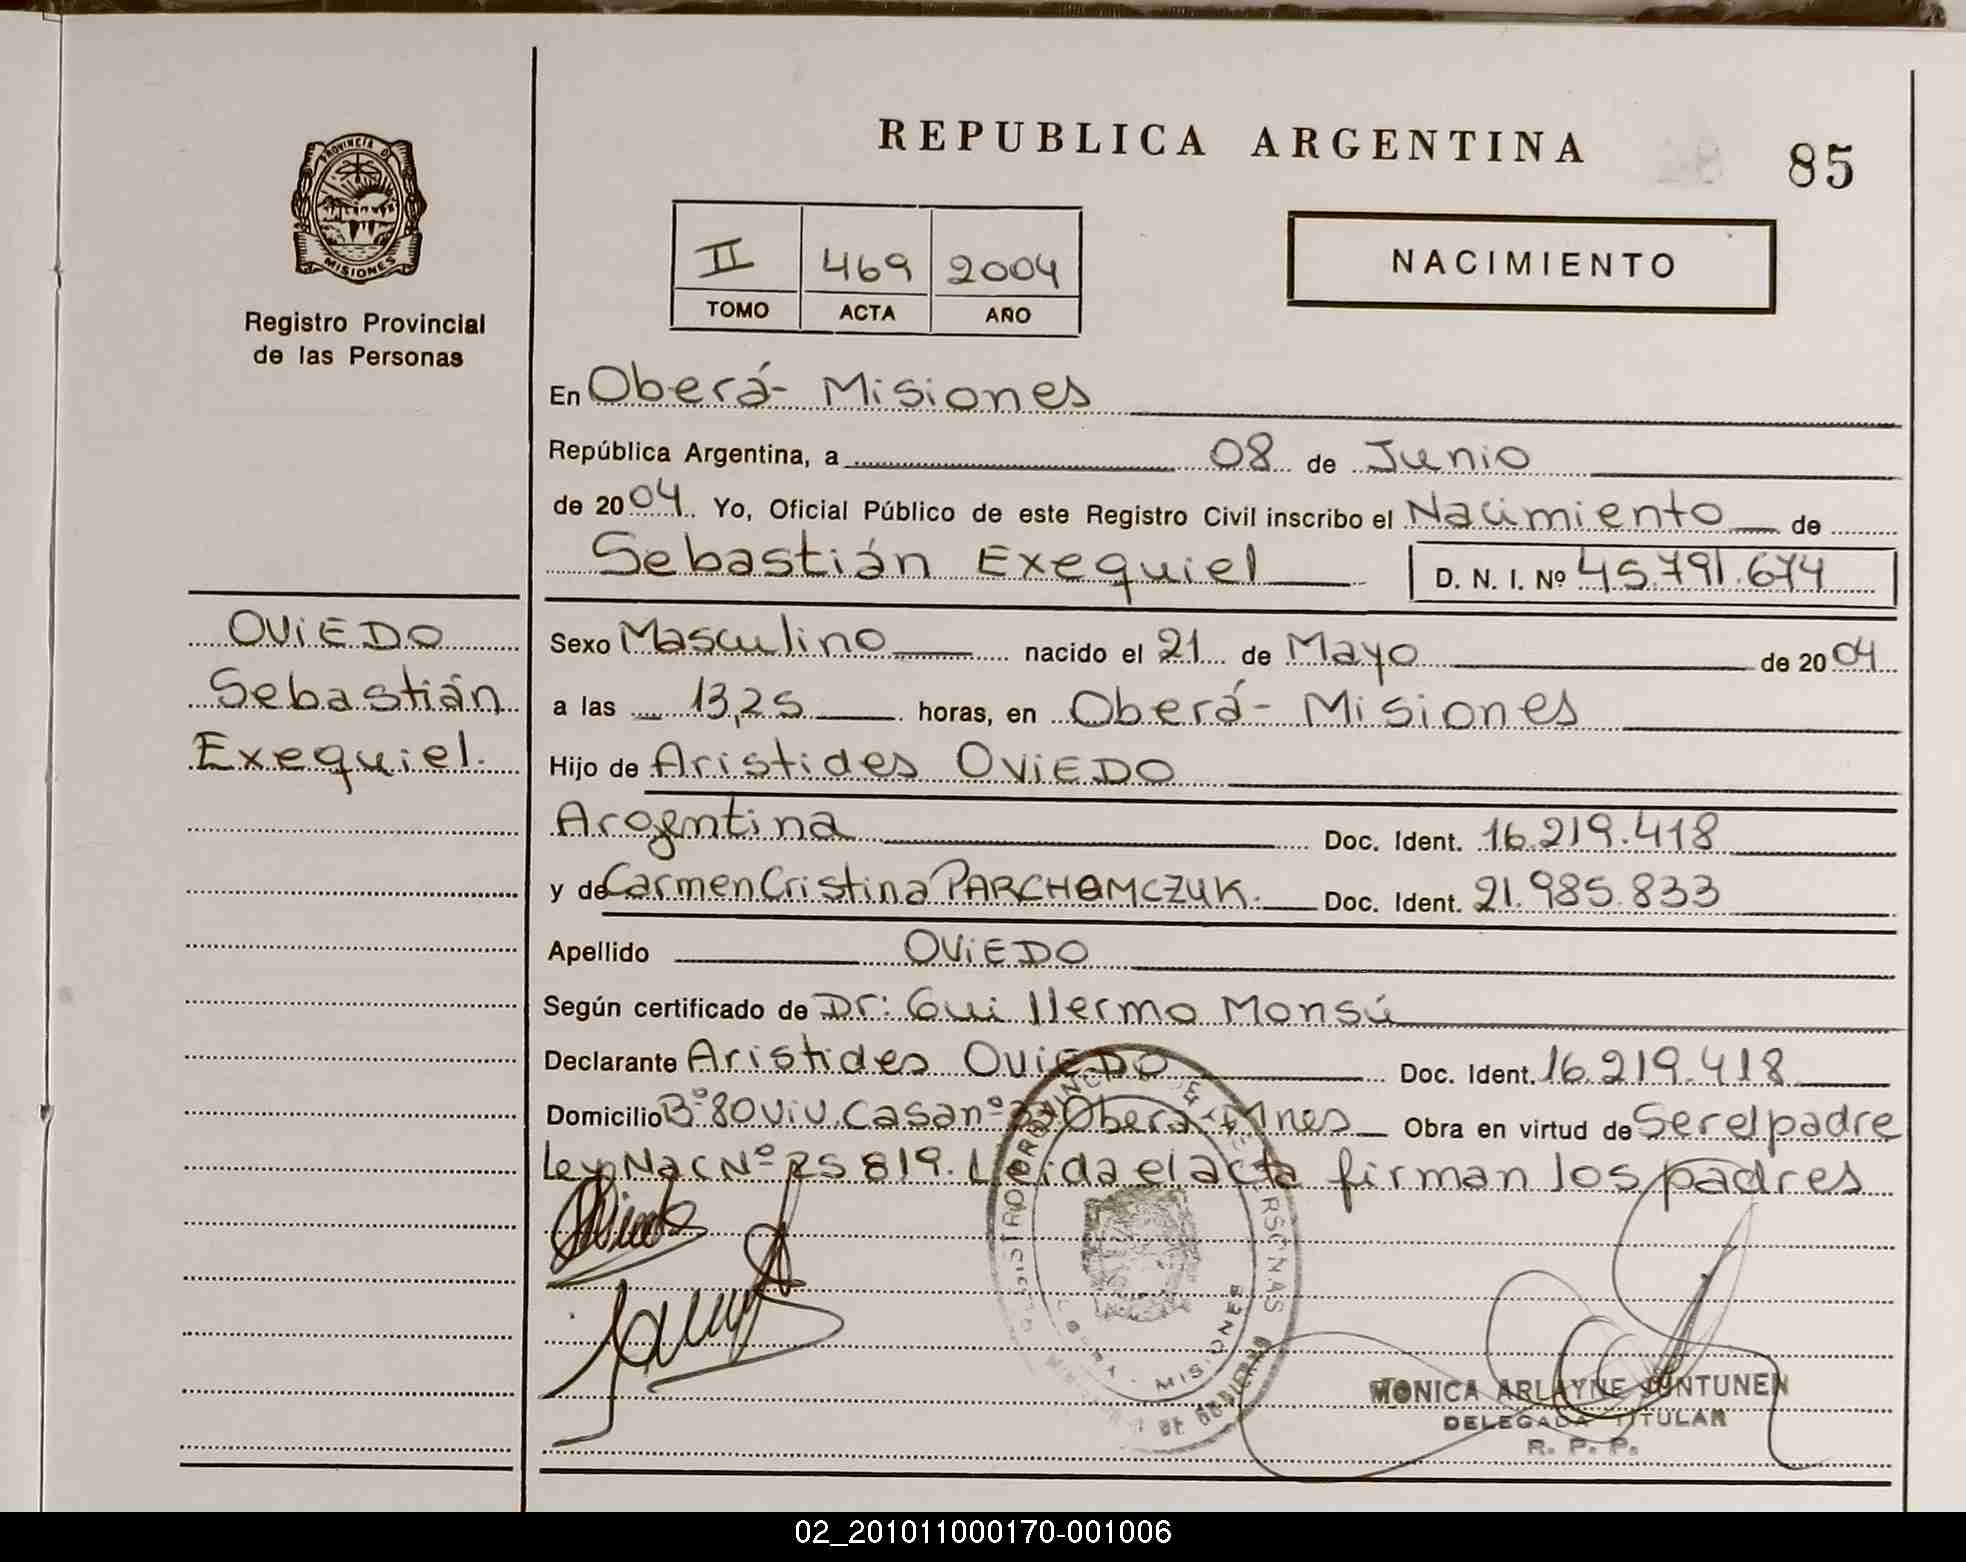 REPUBLICA ARGENTINA
85
PROVINCIA DE
MISIONES
Registro Provincial
de las Personas
II 469 2004
TOMO ACTA AÑO
NACIMIENTO
En Oberá- Misiones
República Argentina, a 08 de Junio
de 2004. Yo, Oficial Público de este Registro Civil inscribo el Nacimiento de
Sebastián Exequiel D. N. I. Nº 45.791.674
OViEDO
Sebastián
Exequiel.
Sexo Masculino nacido el 21 de Mayo de 2004
a las 13,25 horas, en Oberá- Misiones
Hijo de Aristides OViEDO
Argentina Doc. Ident. 16.219.418
y de Carmen Cristina PARCHOMCZUK. Doc. Ident. 21.985.833
Apellido OViEDO
Según certificado de Dr: Guillermo Monsú
Declarante Aristides OViEDO Doc. Ident. 16.219.418
Domicilio Bº 80 Viv. Casa nº Oberá-Mnes Obra en virtud de Ser el padre
Ley Nac Nº 25 819. Leida el acta firman los padres
REGISTRO PROVINCIAL DE LAS PERSONAS
MISIONES
MONICA ARLAYNE JUNTUNEN
DELEGADA TITULAR
R. P. P.
02_201011000170-001006